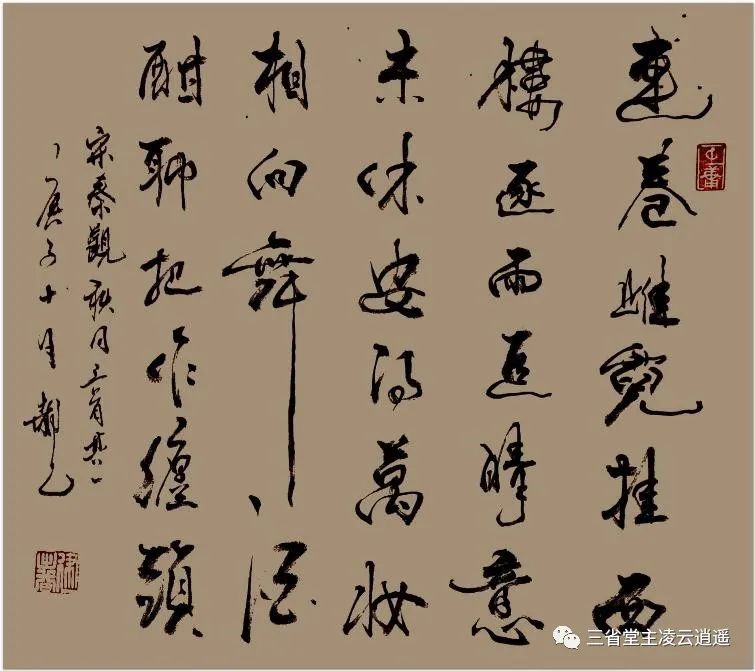 連卷雌霓挂西
樓逐雨追晴意
未休安得萬妝
相向舞酒
酣聊把作纏頭
宋秦觀秋日三首其
庚子十月
三省堂主凌云逍遥